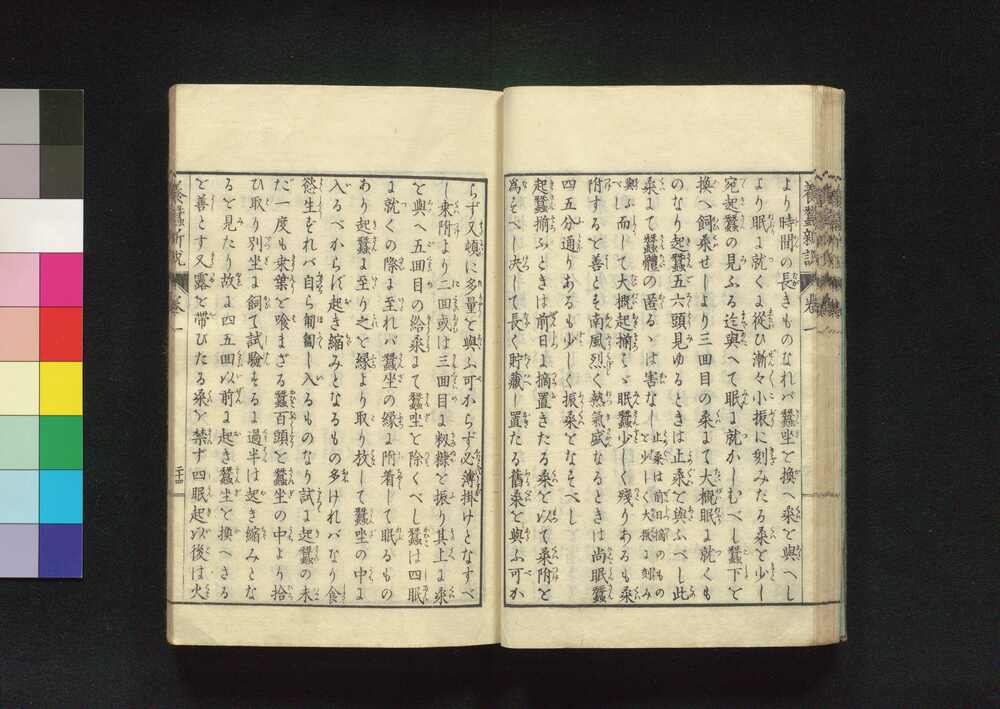 養蠶新説 卷一
より時間の長きものなれバ蠶坐を換へ桒を與へし
より眠に就くに從ひ漸々小振に刻みたる桒を少し
宛起蠶の見ふる迄與へて眠に就かしむべし蠶下を
換へ飼桒せしより三回目の桒にて大概眠に就くも
のなり起蠶五六頭見ゆるときは止桒を與ふべし此
桒にて蠶體の匿るゝは害なし止桒は前摘のもの
を少し大振に刻み
與ふ而して大概起揃ひ眠蠶少しく殘りあるも桒
附するを善とす南風烈く熱氣盛なるときは尚眠蠶
四五分通りあるも少しく振桒をなすべし
起蠶揃ふときは前日に摘置きたる桒を以て桒附を
爲すべし决して長く貯藏し置たる舊桒を與ふ可か
らず又頓に多量を與ふ可からず必薄掛けとなすべ
し桒附より二回或は三回目に籾糠を振り其上に桒
を與へ五回目の給桒にて蠶坐を除くべし蠶は四眠
に就くの際に至れバ蠶坐の縁に附着して眠るもの
あり起蠶に至り之を縁より取り放して蠶坐の中に
入るべからず起き縮みとなるもの多けれバなり食
慾生ずれバ自ら匍匐し入るものなり試に起蠶の未
だ一度も桒葉を喰まざる蠶百頭を蠶坐の中より拾
ひ取り別坐に飼て試驗するに過半は起き縮みとな
るを見たり故に四五回以前に起き蠶坐を換へざる
を善とす又露を帶びたる桒を禁ず四眠起以後は火
養蠶新説 卷一 二十四